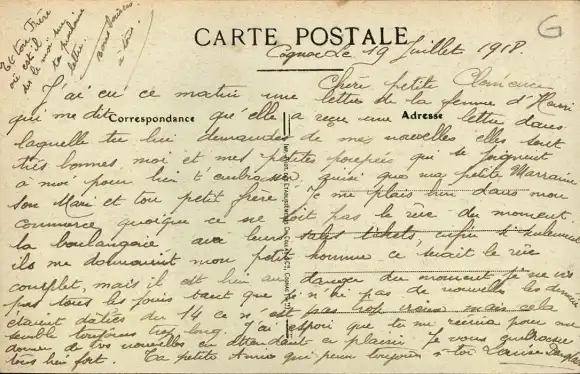 Et ton Frère
où est-il
dis le moi sur
ta prochaine
lettre.
nous baisers
à tous.
CARTE POSTALE
G
Cognac Le 19 Juillet 1918.
Chère petite Clémence
J'ai eu ce matin une lettre de la femme d'Henri
Correspondance
Adresse
qui me dit qu'elle a reçu une lettre dans
laquelle tu lui demandes de mes nouvelles elles sont
très bonnes moi et mes petites poupées qui se joignent
à moi pour bien t'embrasser, ainsi que ma petite Marraine
ton Mari et ton petit frère. Je me plais bien dans mon
commerce quoique ce ne soit pas le rêve du moment.
la boulangerie avec leurs sales tickets enfin si seulement
ils me donnaient mon petit homme ce serait le rêve
complet, mais il est bien au danger du moment je ne vis
pas tous les jours tant que je n'ai pas de nouvelles les dernières
étaient datées du 14 ce n'est pas trop vieux mais cela
semble toujours trop long. J'ai espoir que tu me
donner de tes nouvelles en attendant ce plaisir Je vous embrasse
tous bien fort. Ta petite Amie qui pense toujours à toi Louise